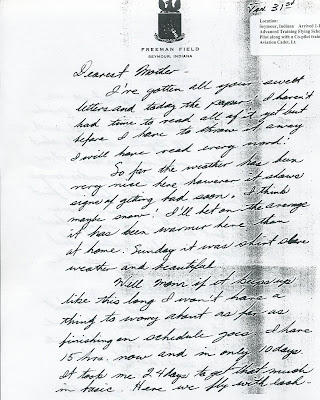 Jan 31st
Location:
Seymour, Indiana Arrived 1-1
Advanced Training Flying Scho
Pilot along with a Co-pilot train
Aviation Cadet, Lt
FREEMAN FIELD
SEYMOUR, INDIANA
Dearest Mother -
I've gotten all your sweet
letters and today the paper. I haven't
had time to read all of it yet but
before I have to throw it away
I will have read every word!
So far the weather has been
very nice here, however it shows
signs of getting bad soon. I think
maybe snow! I'll bet on the average
it has been warmer here than
at home. Sunday it was shirt sleeve
weather and beautiful.
Well Mom if it keeps up
like this long I won't have a
thing to worry about as far as
finishing on schedule goes. I have
15 hrs. now and in only 10 days.
It took me 24 days to get that much
in basic. Here we fly with each-